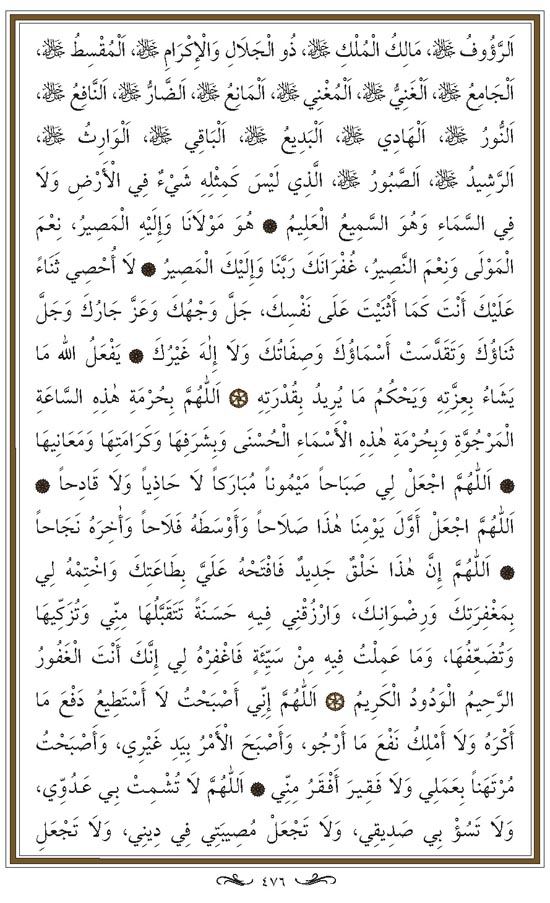 اَلرَّؤُوفُ ﷻ، مَالِكُ الْمُلْكِ ﷻ، ذُو الْجَلَالِ وَالْإِكْرَامِ ﷻ، اَلْمُقْسِطُ ﷻ،
اَلْجَامِعُ ﷻ، اَلْغَنِيُّ ﷻ، اَلْمُغْنِي ﷻ، اَلْمَانِعُ ﷻ، اَلضَّارُّ ﷻ، اَلنَّافِعُ ﷻ،
اَلنُّورُ ﷻ، اَلْهَادِي ﷻ، اَلْبَدِيعُ ﷻ، اَلْبَاقِي ﷻ، اَلْوَارِثُ ﷻ،
اَلرَّشِيدُ ﷻ، اَلصَّبُورُ ﷻ، الَّذِي لَيْسَ كَمِثْلِهِ شَيْءٌ فِي الْأَرْضِ وَلَا
فِي السَّمَاءِ وَهُوَ السَّمِيعُ الْعَلِيمُ ۞ هُوَ مَوْلَانَا وَإِلَيْهِ الْمَصِيرُ، نِعْمَ
الْمَوْلَى وَنِعْمَ النَّصِيرُ، غُفْرَانَكَ رَبَّنَا وَإِلَيْكَ الْمَصِيرُ ۞ لَا أُحْصِي ثَنَاءً
عَلَيْكَ أَنْتَ كَمَا أَثْنَيْتَ عَلَى نَفْسِكَ، جَلَّ وَجْهُكَ وَعَزَّ جَارُكَ وَجَلَّ
ثَنَاؤُكَ وَتَقَدَّسَتْ أَسْمَاؤُكَ وَصِفَاتُكَ وَلَا إِلٰهَ غَيْرُكَ ۞ يَفْعَلُ اللّٰه مَا
يَشَاءُ بِعِزَّتِهِ وَيَحْكُمُ مَا يُرِيدُ بِقُدْرَتِهِ ۞ اَللّٰهُمَّ بِحُرْمَةِ هٰذِهِ السَّاعَةِ
الْمَرْجُوَّةِ وَبِحُرْمَةِ هٰذِهِ الْأَسْمَاءِ الْحُسْنَى وَبِشَرَفِهَا وَكَرَامَتِهَا وَمَعَانِيهَا
۞ اَللّٰهُمَّ اجْعَلْ لِي صَبَاحاً مَيْمُوناً مُبَارَكاً لَا حَاذِياً وَلَا قَادِحاً ۞
اَللّٰهُمَّ اجْعَلْ أَوَّلَ يَوْمِنَا هٰذَا صَلَاحاً وَأَوْسَطَهُ فَلَاحاً وَأٰخِرَهُ نَجَاحاً
۞ اَللّٰهُمَّ إِنَّ هٰذَا خَلْقٌ جَدِيدٌ فَافْتَحْهُ عَلَيَّ بِطَاعَتِكَ وَاخْتِمْهُ لِي
بِمَغْفِرَتِكَ وَرِضْوَانِكَ، وَارْزُقْنِي فِيهِ حَسَنَةً تَتَقَبَّلُهَا مِنِّي وَتُزَكِّيهَا
وَتُضَعِّفُهَا، وَمَا عَمِلْتُ فِيهِ مِنْ سَيِّئَةٍ فَاغْفِرْهُ لِي إِنَّكَ أَنْتَ الْغَفُورُ
الرَّحِيمُ الْوَدُودُ الْكَرِيمُ ۞ اَللّٰهُمَّ إِنِّي أَصْبَحْتُ لَا أَسْتَطِيعُ دَفْعَ مَا
أَكْرَهُ وَلَا أَمْلِكُ نَفْعَ مَا أَرْجُو، وَأَصْبَحَ الْأَمْرُ بِيَدِ غَيْرِي، وَأَصْبَحْتُ
مُرْتَهَناً بِعَمَلِي وَلَا فَقِيرَ أَفْقَرُ مِنِّي ۞ اَللّٰهُمَّ لَا تُشْمِتْ بِي عَدُوِّي،
وَلَا تَسُؤْ بِي صَدِيقِي، وَلَا تَجْعَلْ مُصِيبَتِي فِي دِينِي، وَلَا تَجْعَلِ
٤٧٦